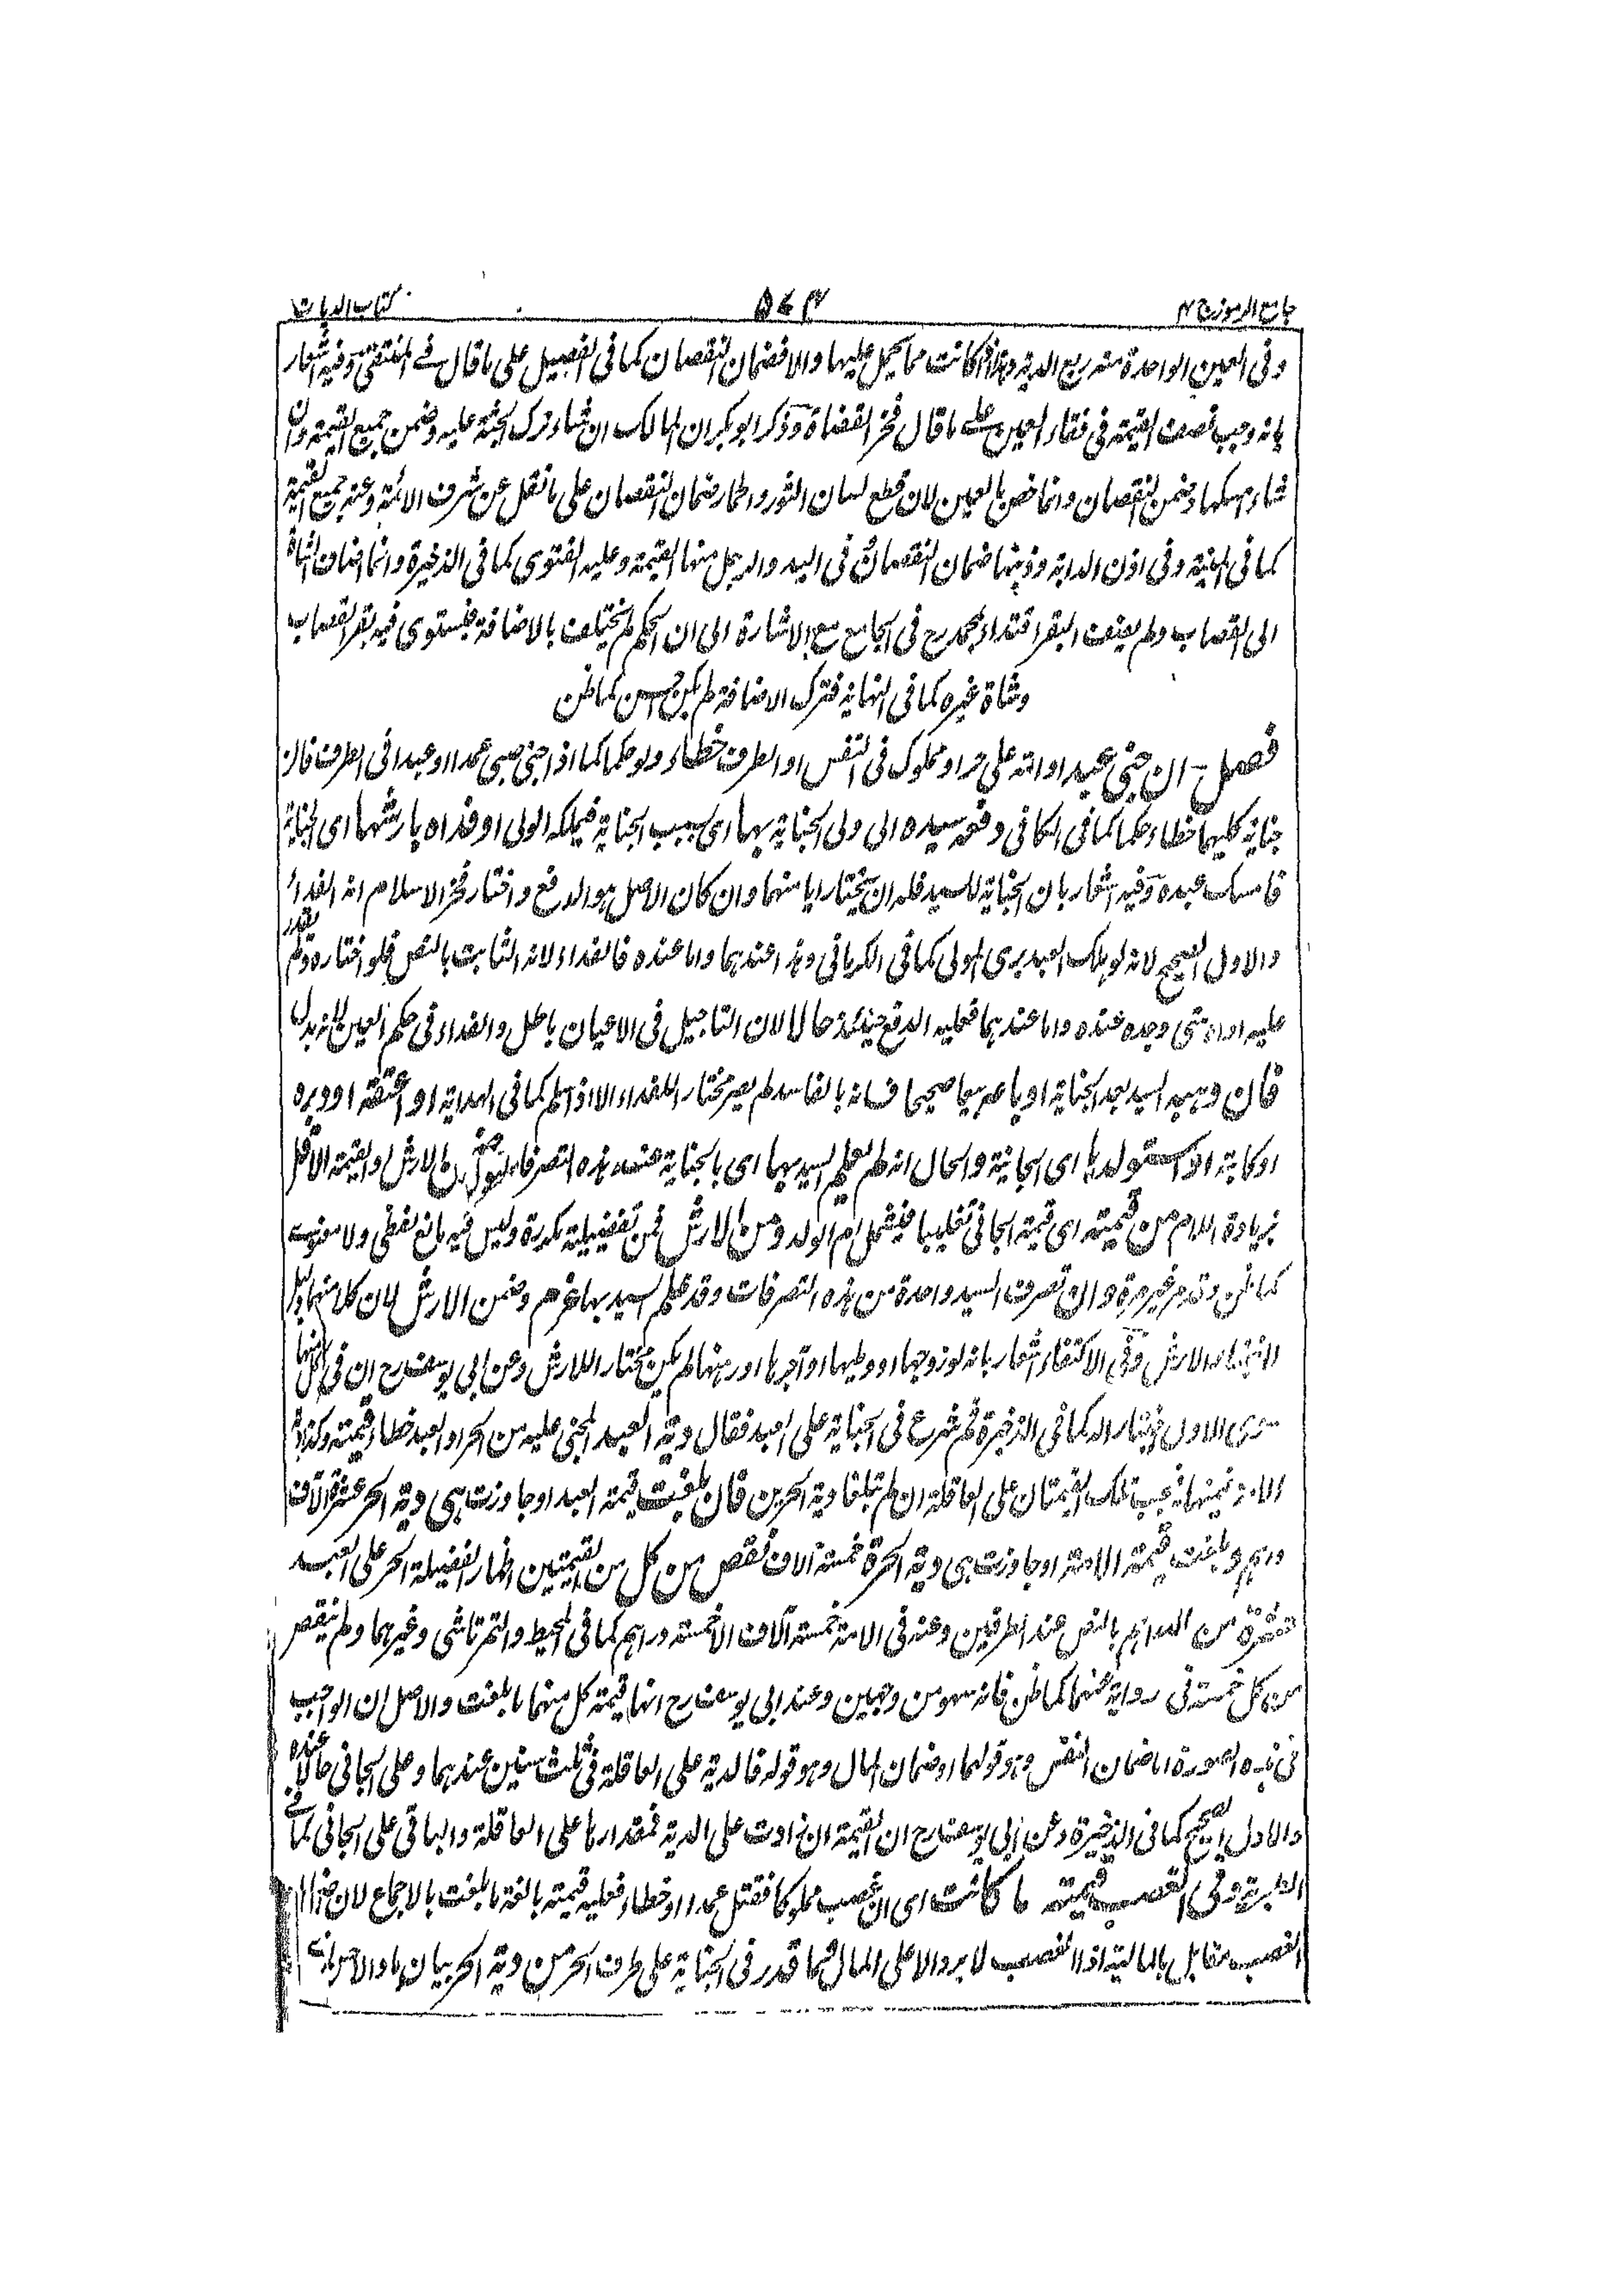 جامع الرموز ج ٢
٥٧٤
كتاب الديات
وفى العين الواحدة منه ربع الدية وهذا اذا كانت مما يحمل عليها والا فضمان النقصان كما فى التفصيل على ما قال فى المنتقى وفيه اشعار
بانه وجب نصف القيمة فى فقاء العين على ما قال فخر القضاة وذكر ابو بكر ان المالك ان شاء ترك الجثة عليه وضمن جميع القيمة وان
شاء امسكها وضمن النقصان وانما خص بالعين لان قطع لسان الثور والحمار ضمان النقصان على ما نقل عن شرف الائمة وعنه جميع القيمة
كما فى المنية وفى اذن الدابة وذنبها ضمان النقصان وفى اليد والرجل منها القيمة وعليه الفتوى كما فى الذخيرة وانما اضاف الشاة
الى القصاب ولم يضف البقر اقتداء لمحمد رح فى الجامع مع الاشارة الى ان الحكم لم يختلف بالاضافة فيستوى فيه بقر القصاب
وشاة غيره كما فى النهاية فترك الاضافة لم يكن احسن كما ظن
فصل ان جنى عبد او امة على حر او مملوك فى النفس او الطرف خطاء ولو حكما كما اذا جنى صبى عمدا او عبدا فى الطرف فان
جناية كليهما خطاء حكما كما فى الكافى دفعه سيده الى ولى الجناية بها اى بسبب الجناية فيملكه الولى او فداه بارشها اى الجناية
فامسك عبده وفيه اشعار بان الجناية للسيد فله ان يختار ايا منهما وان كان الاصل هو الدفع واختار فخر الاسلام انه الفداء
والاول الصحيح لانه لو هلك العبد برى المولى كما فى الكرمانى وهذا عندهما واما عنده فالفداء لانه الثابت بالنص فلو اختاره ولم يقدر
عليه اداه متى وجده عنده واما عندهما فعليه الدفع حينئذ حالا لان التاجيل فى الاعيان باطل والفداء فى حكم العين لانه بدل
فان وهبه السيد بعد الجناية او باعه بيعا صحيحا فانه بالفاسد لم يصر مختارا للفداء الا اذا سلم كما فى الهداية او اعتقه او دبره
او كاتبه او استولدها اى الجانية والحال انه لم يعلم السيد بها اى بالجناية عند هذه التصرفات ضمن الاقل من الارش والقيمة الاقل
بزيادة اللام من قيمته اى قيمة الجانى تغليبا فيشمل ام الولد ومن الارش فمن تفضيلية مكررة وليس فيه مانع لفظى ولا معنوى
كما ظن وقد مر غير مرة وان تصرف السيد واحدة من هذه التصرفات وقد علم السيد بها غرم وضمن الارش لان كلا منها دليل
الاختيار الارش وفى الاكتفاء اشعار بانه لو زوجها او وطيها او آجرها او رهنها لم يكن مختارا للارش وعن ابى يوسف رح ان فى كل منها
سوى الاول اختيارا له كما فى الذخيرة ثم شرع فى الجناية على العبد فقال ودية العبد المجنى عليه من الحر او العبد خطاء قيمته وكذا دية
الامة قيمتها فيجب تلك القيمتان على العاقلة ان لم تبلغا دية الحرين فان بلغت قيمة العبد او جاوزت هى دية الحر عشرة آلاف
درهم وبلغت قيمة الامة او جاوزت هى دية الحرة خمسة آلاف نقص من كل من القيمتين اظهارا لفضيلة الحر على العبد
عشرة من الدراهم بالنص عند الطرفين وعنه فى الامة خمسة آلاف الا خمسة دراهم كما فى المحيط والتمرتاشى وغيرهما ولم ينقص
من كل خمسة فى رواية عنهما كما ظن فانه سهو من وجهين وعند ابى يوسف رح انها قيمة كل منهما ما بلغت والاصل ان الواجب
فى هذه الصورة اما ضمان النفس وهو قولهما او ضمان المال وهو قوله فالدية على العاقلة فى ثلث سنين عندهما وعلى الجانى حالا عنده
والاول الصحيح كما فى الذخيرة وعن ابى يوسف رح ان القيمة ان زادت على الدية فمقدارها على العاقلة والباقى على الجانى كما فى
الظهيرية وفى الغصب قيمته ما كانت اى ان غصب مملوكا فقتل عمدا او خطاء فعليه قيمته بالغة ما بلغت بالاجماع لان ضمان
الغصب مقابل بالمالية اذ الغصب لا يرد الا على المال فما قدر فى الجناية على طرف الحر من دية الحر بيان